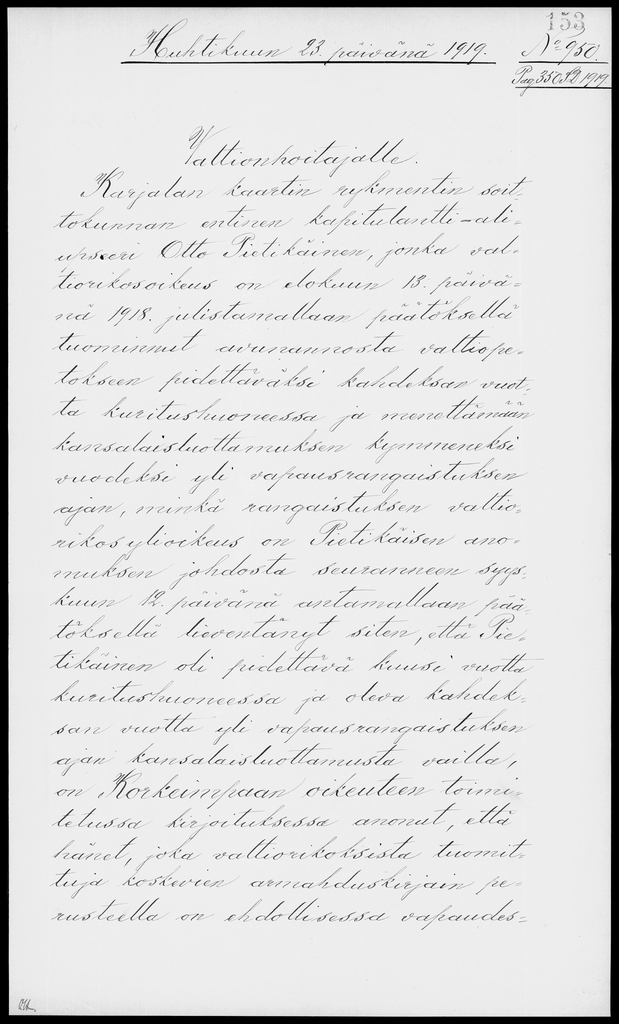 153
Huhtikuun 23. päivänä 1919. No 950.
Pag. 350 1919
Valtionhoitajalle.
Karjalan kaartin rykmentin soit-
tokunnan entinen kapitulantti-ali-
upseeri Otto Pietikäinen, jonka val-
tiorikosoikeus on elokuun 13. päivä-
nä 1918. julistamallaan päätöksellä
tuominnut avunannosta valtiope-
tokseen pidettäväksi kahdeksan vuot-
ta kuritushuoneessa ja menettämään
kansalaisluottamuksen kymmeneksi
vuodeksi yli vapausrangaistuksen
ajan, minkä rangaistuksen valtio-
rikosylioikeus on Pietikäisen ano-
muksen johdosta seuranneen syys-
kuun 12. päivänä antamallaan pää-
töksellä lieventänyt siten, että Pie-
tikäinen oli pidettävä kuusi vuotta
kuritushuoneessa ja oleva kahdek-
san vuotta yli vapausrangaistuksen
ajan kansalaisluottamusta vailla,
on Korkeimpaan oikeuteen toimi-
tetussa kirjoituksessa anonut, että
hänet, joka valtiorikoksista tuomit-
tuja koskevien armahduskirjain pe-
rusteella on ehdollisessa vapaudes-